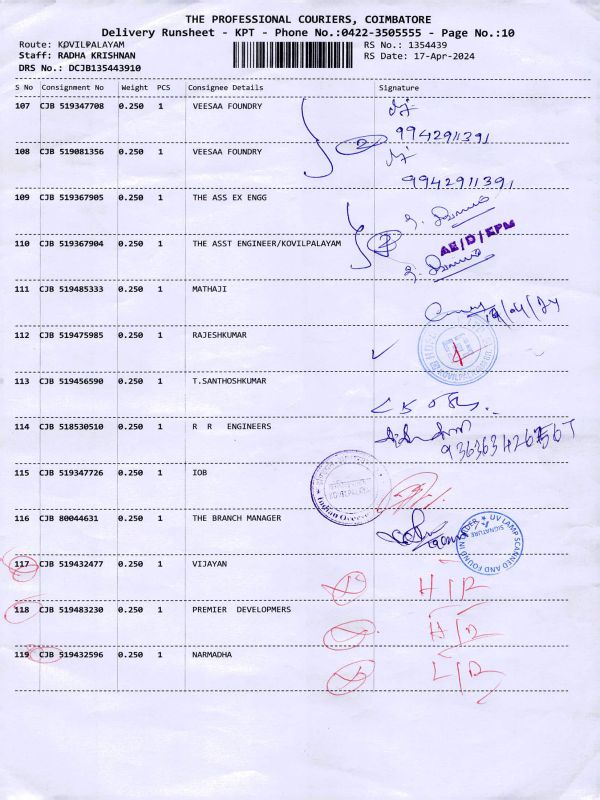 THE PROFESSIONAL COURIERS, COIMBATORE
Delivery Runsheet - KPT - Phone No.:0422-3505555 - Page No.:10
Route: KOVILPALAYAM RS No.: 1354439
Staff: RADHA KRISHNAN RS Date: 17-Apr-2024
DRS No.: DCJB135443910
S No Consignment No Weight PCS Consignee Details Signature
107 CJB 519347708 0.250 1 VEESAA FOUNDRY
2 9942911391
108 CJB 519081356 0.250 1 VEESAA FOUNDRY
9942911391
109 CJB 519367905 0.250 1 THE ASS EX ENGG
110 CJB 519367904 0.250 1 THE ASST ENGINEER/KOVILPALAYAM 2 AE/D/KPM
111 CJB 519485333 0.250 1 MATHAJI
112 CJB 519475985 0.250 1 RAJESHKUMAR
113 CJB 519456590 0.250 1 T.SANTHOSHKUMAR
114 CJB 518530510 0.250 1 R R ENGINEERS
115 CJB 519347726 0.250 1 IOB
Indian Overse
116 CJB 80044631 0.250 1 THE BRANCH MANAGER
UV LAMP SCANNED AND FOUND IN ORDER
SIGNATURE
117 CJB 519432477 0.250 1 VIJAYAN
118 CJB 519483230 0.250 1 PREMIER DEVELOPMERS
119 CJB 519432596 0.250 1 NARMADHA